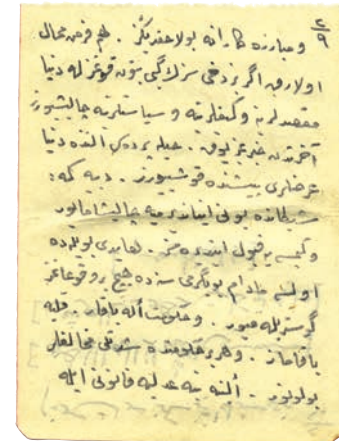 ٢/٩
و مبارزه كارانه بولاجقدیگز. هم فرض محال
اولارق اگر بز دخی سزك گبی بتون قوتمزله دنیا
مقصدلرینه و كیفلرینه و سیاستلرینه چالیشیورز
آخرتدن خبرمز یوق. حیله پرده‌سی آلتنده دنیا
غرضلری پیشنده قوشیورز. دیه كه:
شیطانده بونی ایناندیرمیه چالیشامایور
و كیمسه یه قبول ایتدیره‌مز. هایدی بویله ده
اولسه مادام بو یگرمی سنه‌ده هیچ بر وقوعاتمز
گوستریلمیور. و حكومت أله باقار. قلبه
باقاماز. و هر حكومتده شدتلی مخالفلر
بولونور. ألبته ینه عدلیه قانونی ایله